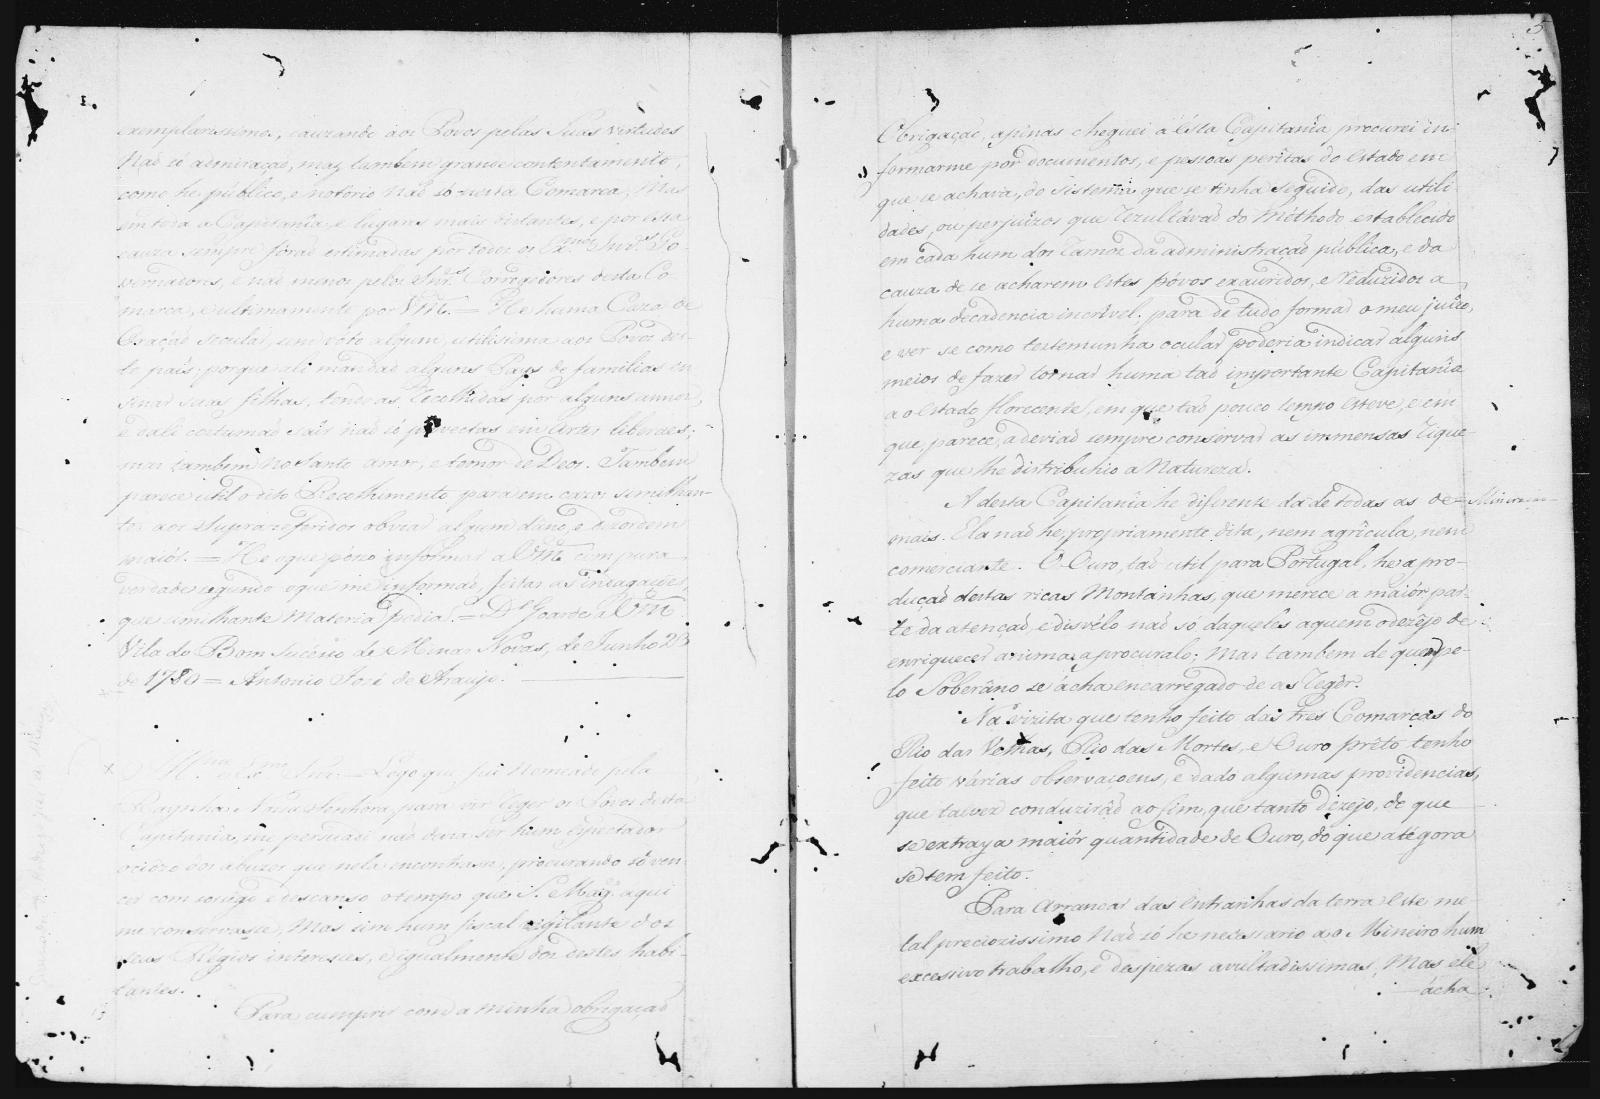 exemplarissimos, cauzando aos Povos pelas Suas virtudes
Naõ só admiraçaõ, mas tambem grande contentamento,
como he público, e notorio naõ só nesta Comarca, Mas
em toda a Capitanîa, e lugares mais distantes, e por esta
cauza sempre foraõ estimadas por todos os Ex.mos Snr.s Go-
vernadores, e naõ menos pelos Snr.s Corregedores desta Co-
marca, e ultimamente por VM.ce = He huma Caza de
Oraçaõ secular, sem vóto algum, utilissima aos Povos des-
te paîs; porque ali mandaõ alguns Pays de familias en-
sinar suas filhas, tendo as recolhidas por alguns annos,
e dali costumaõ sair naõ só provectas em Artes liberaes;
mas tambem no Santo amor, e temor de Deos. Tambem
parece util o dito Recolhimento para em cazos similhan-
tes aos Supra referidos obviar algum dâno, e dezordem
maiór. = He o que pósso informar a VM.ce com pura
verdade segundo o que me informaõ feitas as indagaçoẽs,
que similhante materia pedia. = D.s Goarde a VM.ce
Vila do Bom Sucésso de Minas Novas, de Junho 28
de 1780 = Antonio José de Araujo.
Ill.mo e Ex.mo Snr. = Logo que fui Nomeado pela
Raynha Nossa Senhora, para vir reger os Póvos desta
Capitania, me persuadi naõ devia ser hum espectador
ociozo dos abuzos que nela encontrasse, procurando só ven-
cer com socego e descanso o tempo que S. Mag.e aqui
me conservasse, Mas sim hum fiscal vigilante dos
seus Régios interesses, e igualmente dos destes habi-
tantes.
Para cumprir com a minha obrigaçaõ
5
Obrigaçaõ, apenas cheguei a ésta Capitanîa procurei in-
formarme por documentos, e pessoas peritas do estado em
que se achava, do sistema que se tinha seguido, das utili-
dades, ou perjuizos que rezultávaõ do Méthodo establecido
em cada hum dos ramos da administraçaõ pública, e da
cauza de se acharem éstes póvos exauridos, e reduzidos a
huma decadencia incrivel; para de tudo formar o meu juizo,
e ver se como testemunha ocular poderia indicar alguns
meios de fazer tornar huma taõ importante Capitanîa
ao estado florecente, em que taõ pouco tempo esteve, e em
que, parece, a deviaõ sempre conservar as immensas rique-
zas que lhe distribuhio a Natureza.
A desta Capitanîa he diferente da de todas as de-
mais. Ela naõ he, propriamente dita, nem agrîcula, nem
comerciante. O Ouro, taõ util para Portugal, he a pro-
duçaõ destas ricas Montanhas, que merece a maiór par-
te da atençaõ, e disvélo naõ só daqueles a quem o dezêjo de
enriquecer anima a procuralo; Mas tambem de quem pe-
lo Soberâno se ácha encarregado de as regêr.
Na vizita que tenho feito das tres Comarcas do
Rio das Velhas, Rio das Mortes, e Ouro prêto tenho
feito várias observaçoens, e dado algumas providencias,
que talvez conduziráõ ao fim, que tanto dezejo, de que
se extraya maiór quantidade de Ouro, do que atégora
se tem feito.
Para arrancar das entranhas da terra éste me-
tal preciozissimo Naõ só he necessario ao Mineiro hum
excessivo trabalho, e despezas avultadissimas, Mas ele
acha